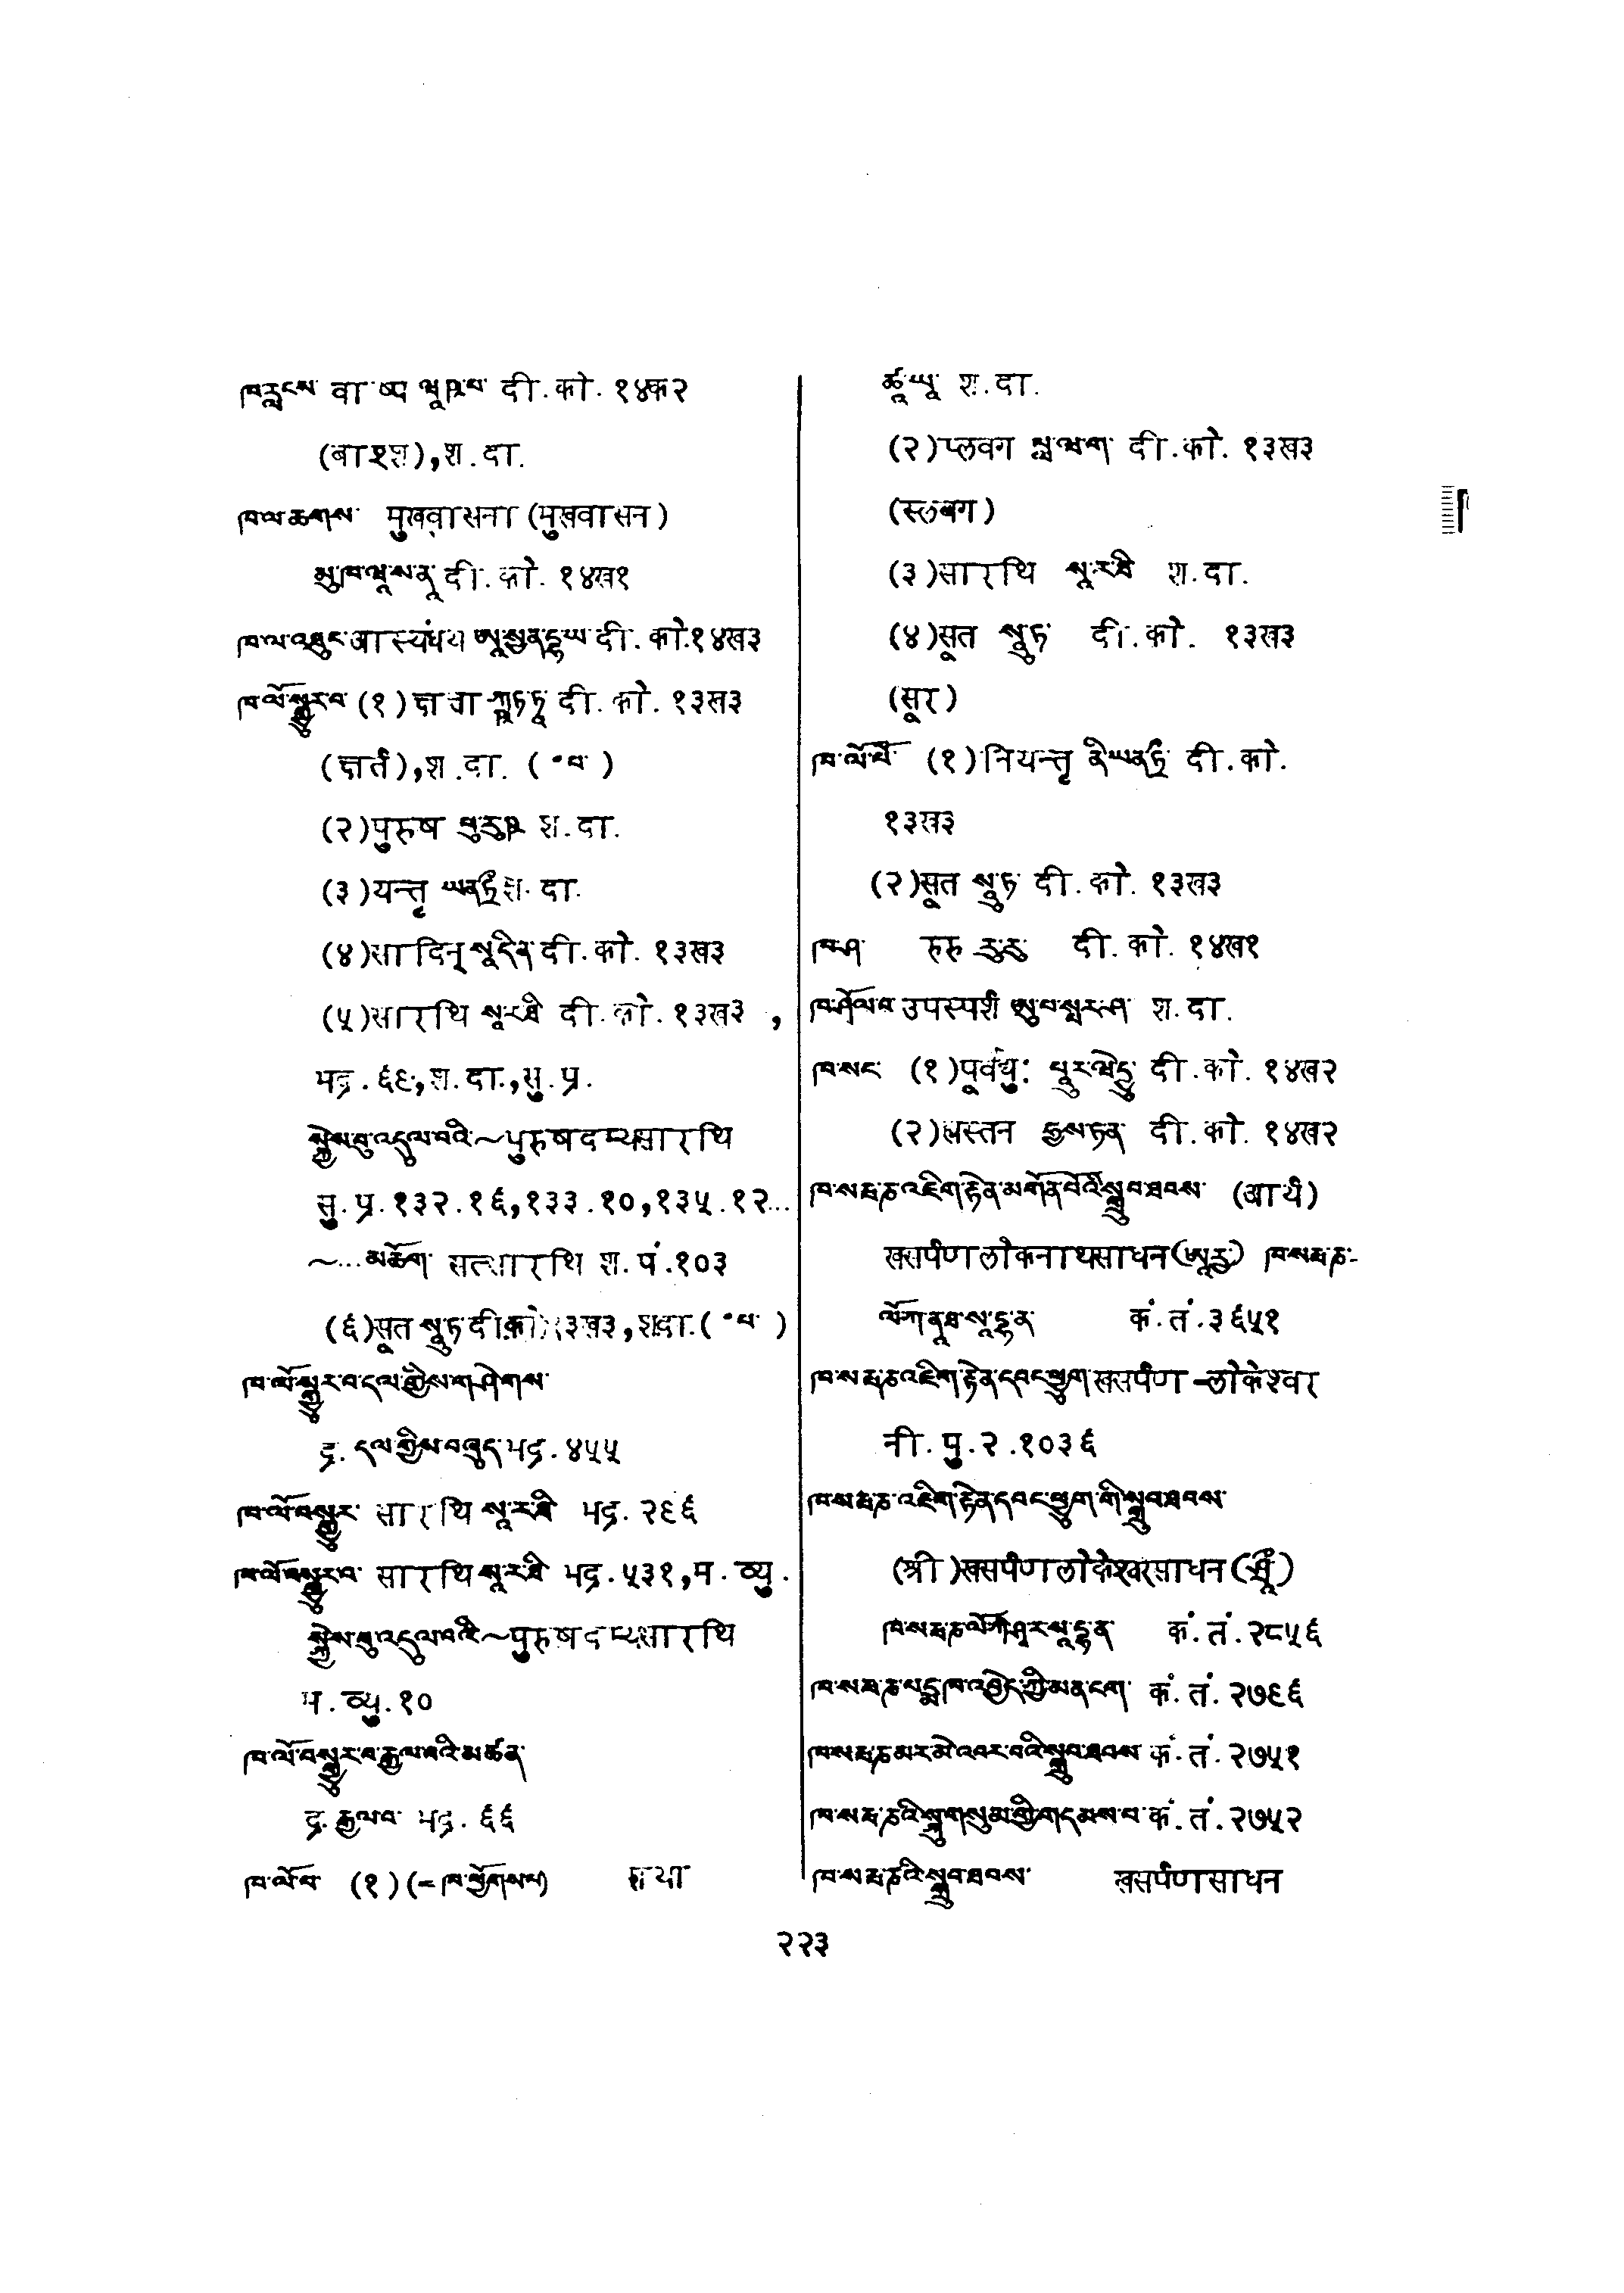 ཁ་རླངས་ वाष्प ཝཱཥྤ དी.को. १४क२
(बाश्श),श.दा.
ཁ་ལ་ཆགས་ मुखवासना (मुखवासन)
མུ་ཁ་ཝཱ་ས་ནཱ दी.को. १४ख१
ཁ་ལ་འཐུང་ आस्यंधय ཨཱ་སྱན་དྷ་ཡ दी.को.१४ख३
ཁ་ལོ་སྒྱུར་བ་ (१) दी.को. १३ख३
श.दा. (॰བ་ )
(२)पुरुष པུ་རུ་ཥ श.दा.
(३)यन्तृ ཡནྟྲྀ श.दा.
(४)सादिन् སཱ་དིན दी.को. १३ख३
(५)सारथि སཱ་ར་ཐི दी.को. १३ख३ ,
भद्र.६९,श.दा.,सु.प्र.
སྐྱེས་བུ་འདུལ་བའི་~पुरुषदम्यसारथि
सु.प्र.१३२.१६,१३३.१०,१३५.१२...
~...མཆོག་ सत्सारथि श.पं.१०३
(६)सूत སཱུ་ཏ दी.को.१३ख३,श.दा.(॰པ་ )
ཁ་ལོ་སྒྱུར་བ་དལ་གྱིས་གཤེགས་
द्र. དལ་གྱིས་བཞུད་ भद्र.४५५
ཁ་ལོ་བསྒྱུར་ सारथि སཱ་ར་ཐི भद्र.२९६
ཁ་ལོ་བསྒྱུར་བ་ सारथि སཱ་ར་ཐི भद्र.५३१,म.व्यु.
སྐྱེས་བུ་འདུལ་བའི་~पुरुषदम्यसारथि
म.व्यु.१०
ཁ་ལོ་བསྒྱུར་བ་རྒྱལ་བའི་མཚན་
द्र. རྒྱལ་བ་ भद्र.६६
ཁ་ལོ་བ་ (१)(=ཁ་ཕྱོགས་པ)
श.दा.
(२)प्लवग དी.को. १३ख३
(स्लबग)
(३)सारथि སཱ་ར་ཐི श.दा.
(४)सूत སཱུ་ཏ दी.को. १३ख३
(सूर)
ཁ་ལོ་པ་ (१)नियन्तृ ནི་ཡནྟྲྀ दी.को.
१३ख३
(२)सूत སཱུ་ཏ दी.को. १३ख३
ཁ་ཤ་ रुरु རུ་རུ दी.को. १४ख१
ཁ་ཤོལ་བ་ उपस्पर्श ཨུ་པ་སྤར་ཤ་ श.दा.
ཁ་སང་ (१)पूर्वेद्यु: པཱུར་ཝེ་དྱུ दी.को. १४ख२
(२)ह्यस्तन ཧྱ་སྟན་ दी.को. १४ख२
ཁ་སརྤ་ཎ་འཇིག་རྟེན་མགོན་པོའི་སྒྲུབ་ཐབས་ (आर्य)
खसर्पणलोकनाथसाधन(ཨཱརྱ) ཁ་སརྤ་ཎ་-
ལོ་ཀ་ནཱ་ཐ་སཱ་དྷ་ན་ कं.तं.३६५१
ཁ་སརྤ་ཎ་འཇིག་རྟེན་དབང་ཕྱུག་ खसर्पण-लोकेश्वर
नी.पु.२.१०३६
ཁ་སརྤ་ཎ་འཇིག་རྟེན་དབང་ཕྱུག་གི་སྒྲུབ་ཐབས་
(श्री)खसर्पणलोकेश्वरसाधन(ཤྲཱི)
ཁ་སརྤ་ཎ་ལོ་ཀེ་ཤྭ་ར་སཱ་དྷ་ན་ कं.तं.२८५६
ཁ་སརྤ་ཎ་པདྨ་ཁ་འབྱེད་ཀྱི་མན་ངག་ कं.तं.२७९६
ཁ་སརྤ་ཎ་མར་མེ་འབར་བའི་སྒྲུབ་ཐབས་ कं.तं.२७५१
ཁ་སརྤ་ཎའི་སྐུ་གསུམ་གྱི་གདམས་པ་ कं.तं.२७५२
ཁ་སརྤ་ཎའི་སྒྲུབ་ཐབས་ खसर्पणसाधन
२२३